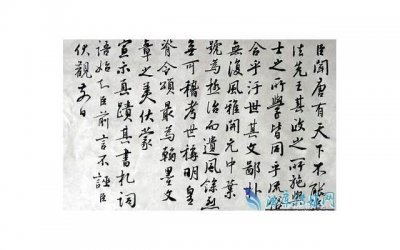 臣聞唐有天下不能
法先王其政之所施與
士之所學皆因乎流
合乎汙世其文鄙朴
無復風雅開元中葉
號為極治而遺風餘烈
無可稽考世稱明皇
脊令頌最為翰墨文
章之美伏蒙
宣示真蹟其書札詞
語始知臣前言不誣臣
伏觀